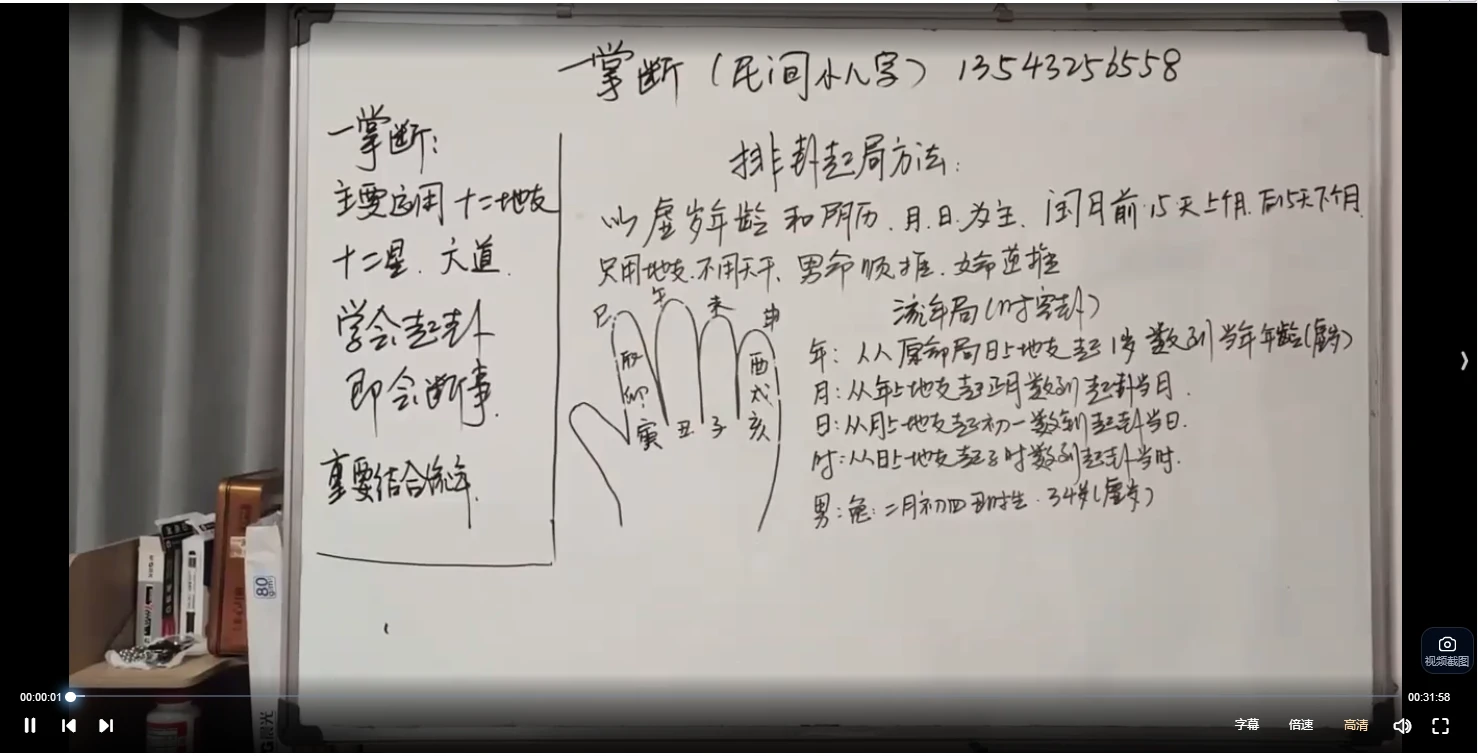 一掌断（民间小八字）13543256558
一掌断：
主要应用十二地支
十二星．六道．
学会起卦
即会断事．
重要结合流年．
排卦起局方法：
以虚岁年龄和阴历．月．日．为主．闰月前15天上个月．后15天下个月．
只用地支．不用天干．男命顺推．女命逆推
流年局（时空卦）
年：从原命局日上地支起1岁数到当年年龄（虚岁）
月：从年上地支起正月数到起卦当月．
日：从月上地支起初一数到起卦当日．
时：从日上地支起子时数到起卦当时．
男：兔：二月初四丑时生．34岁（虚岁）
巳 午 未 申
辰 酉
卯 戌
寅 丑 子 亥
80
g/m²
晨光
视频截图
00:00:01
00:31:58
字幕 倍速 高清